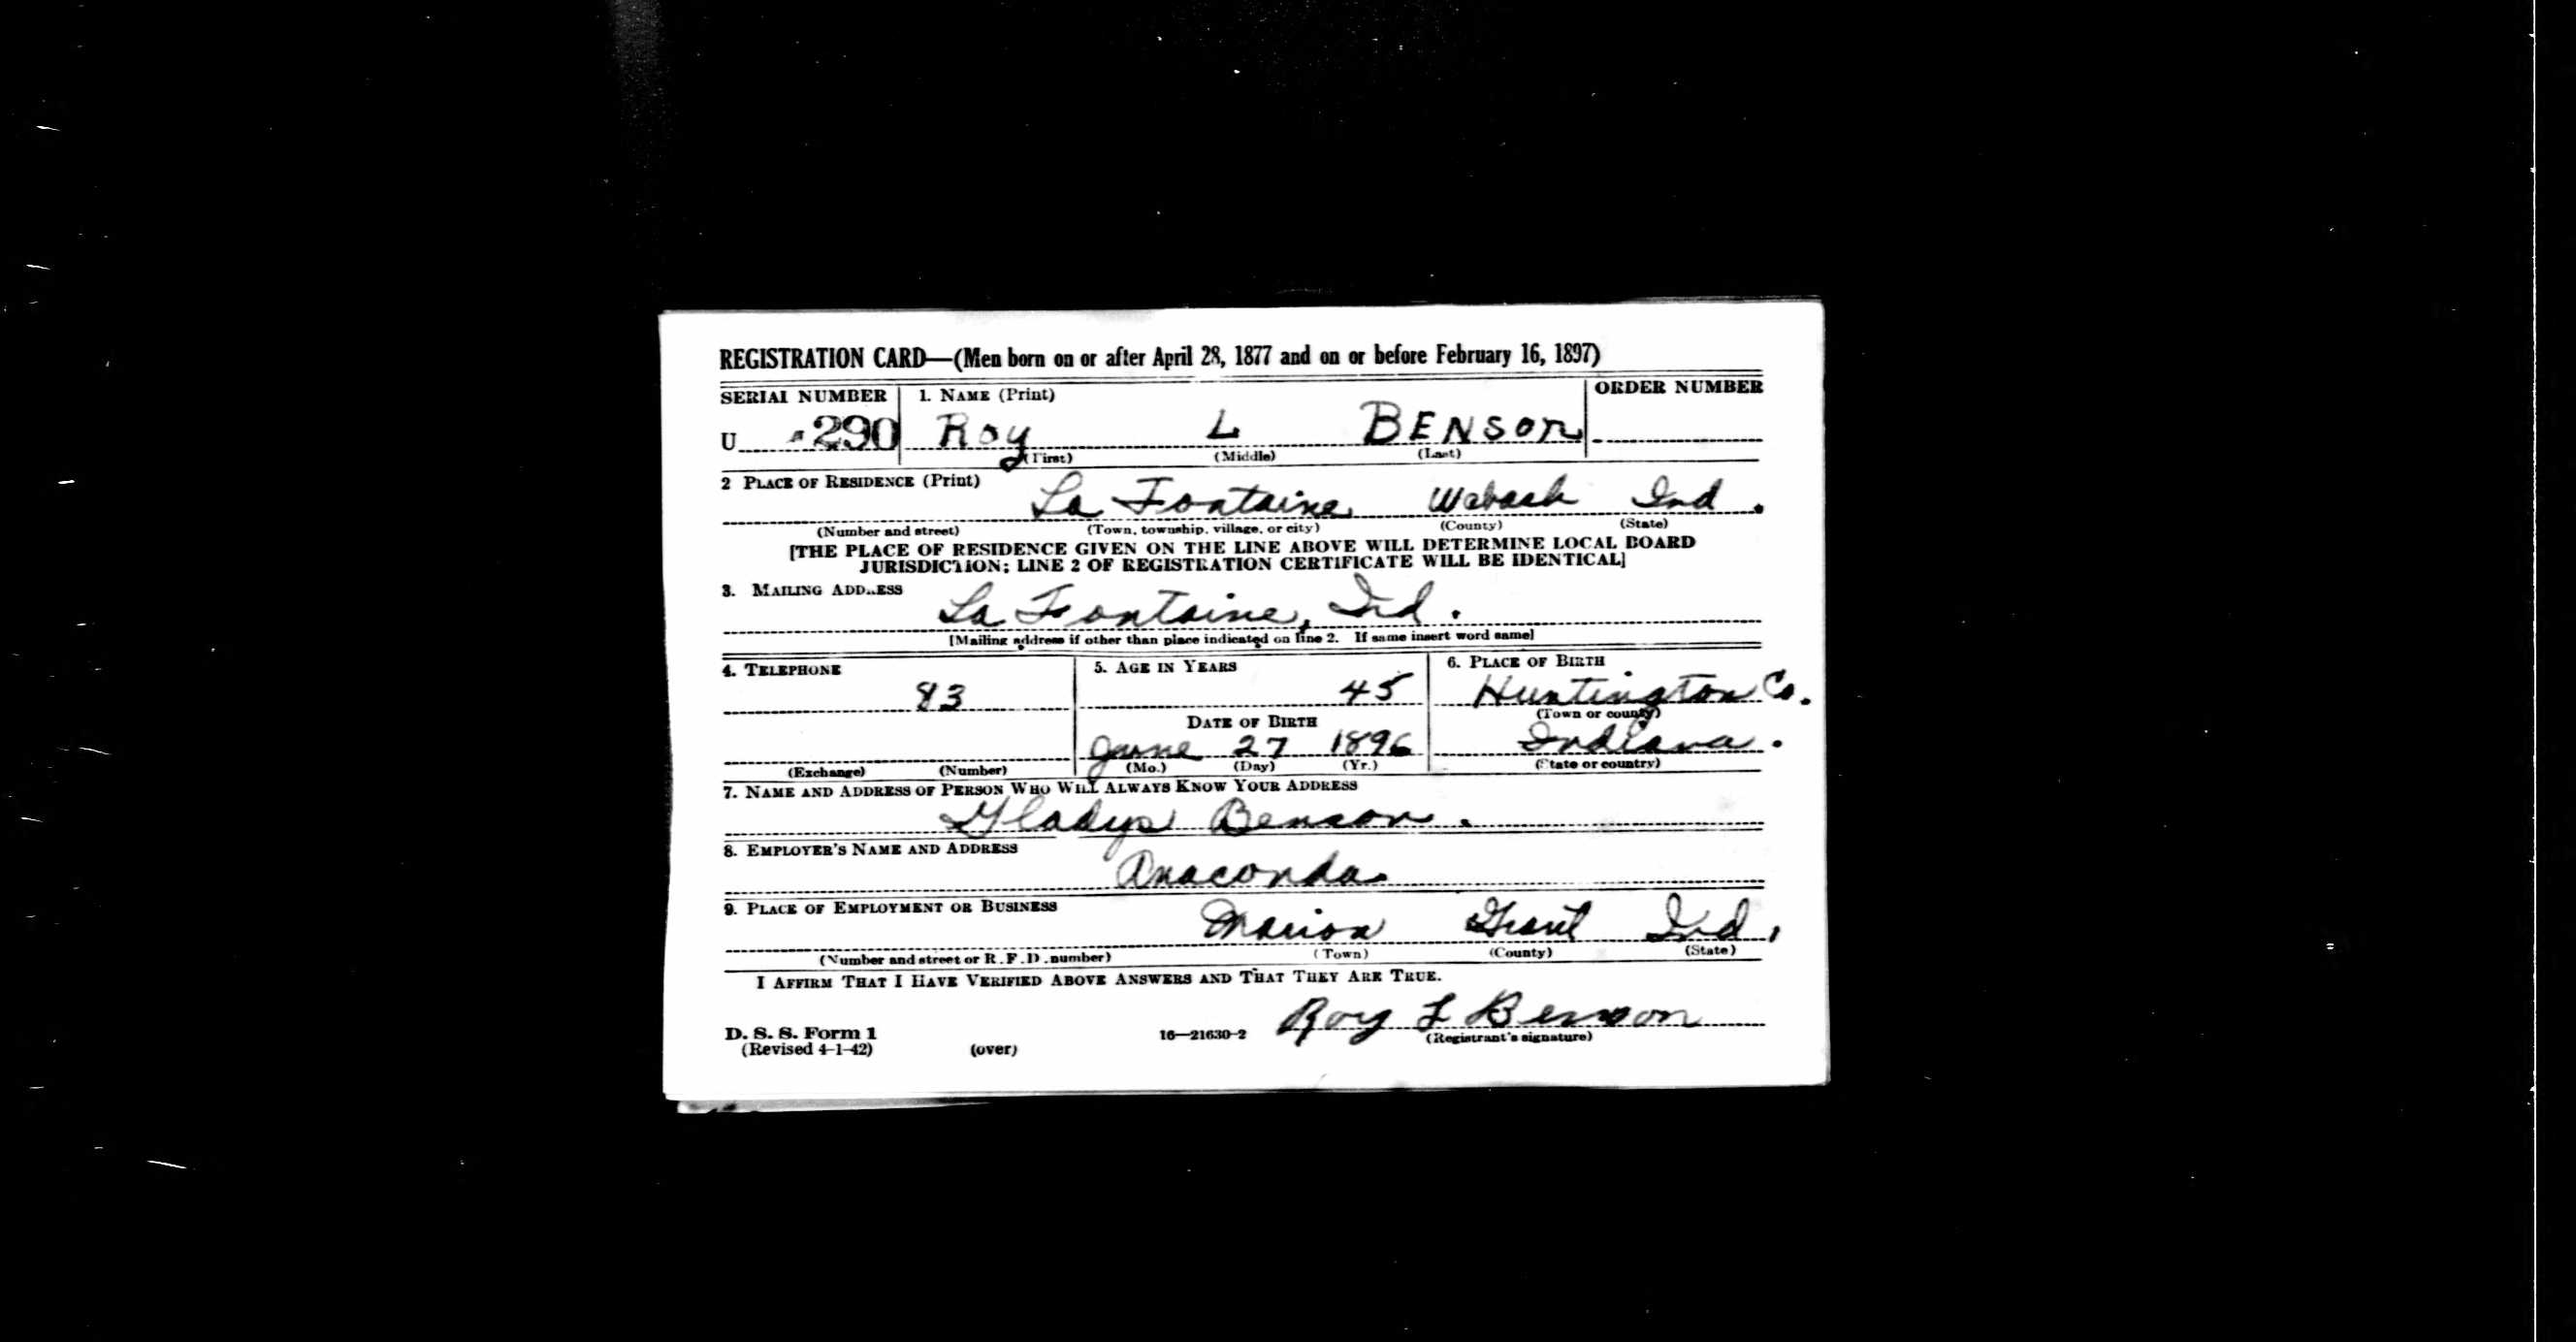 REGISTRATION CARD—(Men born on or after April 28, 1877 and on or before February 16, 1897)
SERIAL NUMBER 1. NAME (Print) ORDER NUMBER
U 290 Roy L BENSON
(First) (Middle) (Last)
2 PLACE OF RESIDENCE (Print)
La Fontaine Wabash Ind.
(Number and street) (Town, township, village, or city) (County) (State)
[THE PLACE OF RESIDENCE GIVEN ON THE LINE ABOVE WILL DETERMINE LOCAL BOARD
JURISDICTION; LINE 2 OF REGISTRATION CERTIFICATE WILL BE IDENTICAL]
3. MAILING ADDRESS
La Fontaine, Ind.
[Mailing address if other than place indicated on line 2. If same insert word same]
4. TELEPHONE 5. AGE IN YEARS 6. PLACE OF BIRTH
83 45 Huntington Co.
DATE OF BIRTH (Town or county)
June 27 1896 Indiana.
(Exchange) (Number) (Mo.) (Day) (Yr.) (State or country)
7. NAME AND ADDRESS OF PERSON WHO WILL ALWAYS KNOW YOUR ADDRESS
Gladys Benson.
8. EMPLOYER'S NAME AND ADDRESS
Anaconda
9. PLACE OF EMPLOYMENT OR BUSINESS
Marion Grant Ind.
(Number and street or R.F.D. number) (Town) (County) (State)
I AFFIRM THAT I HAVE VERIFIED ABOVE ANSWERS AND THAT THEY ARE TRUE.
Roy L Benson
D. S. S. Form 1 16—21630-2 (Registrant's signature)
(Revised 4-1-42) (over)